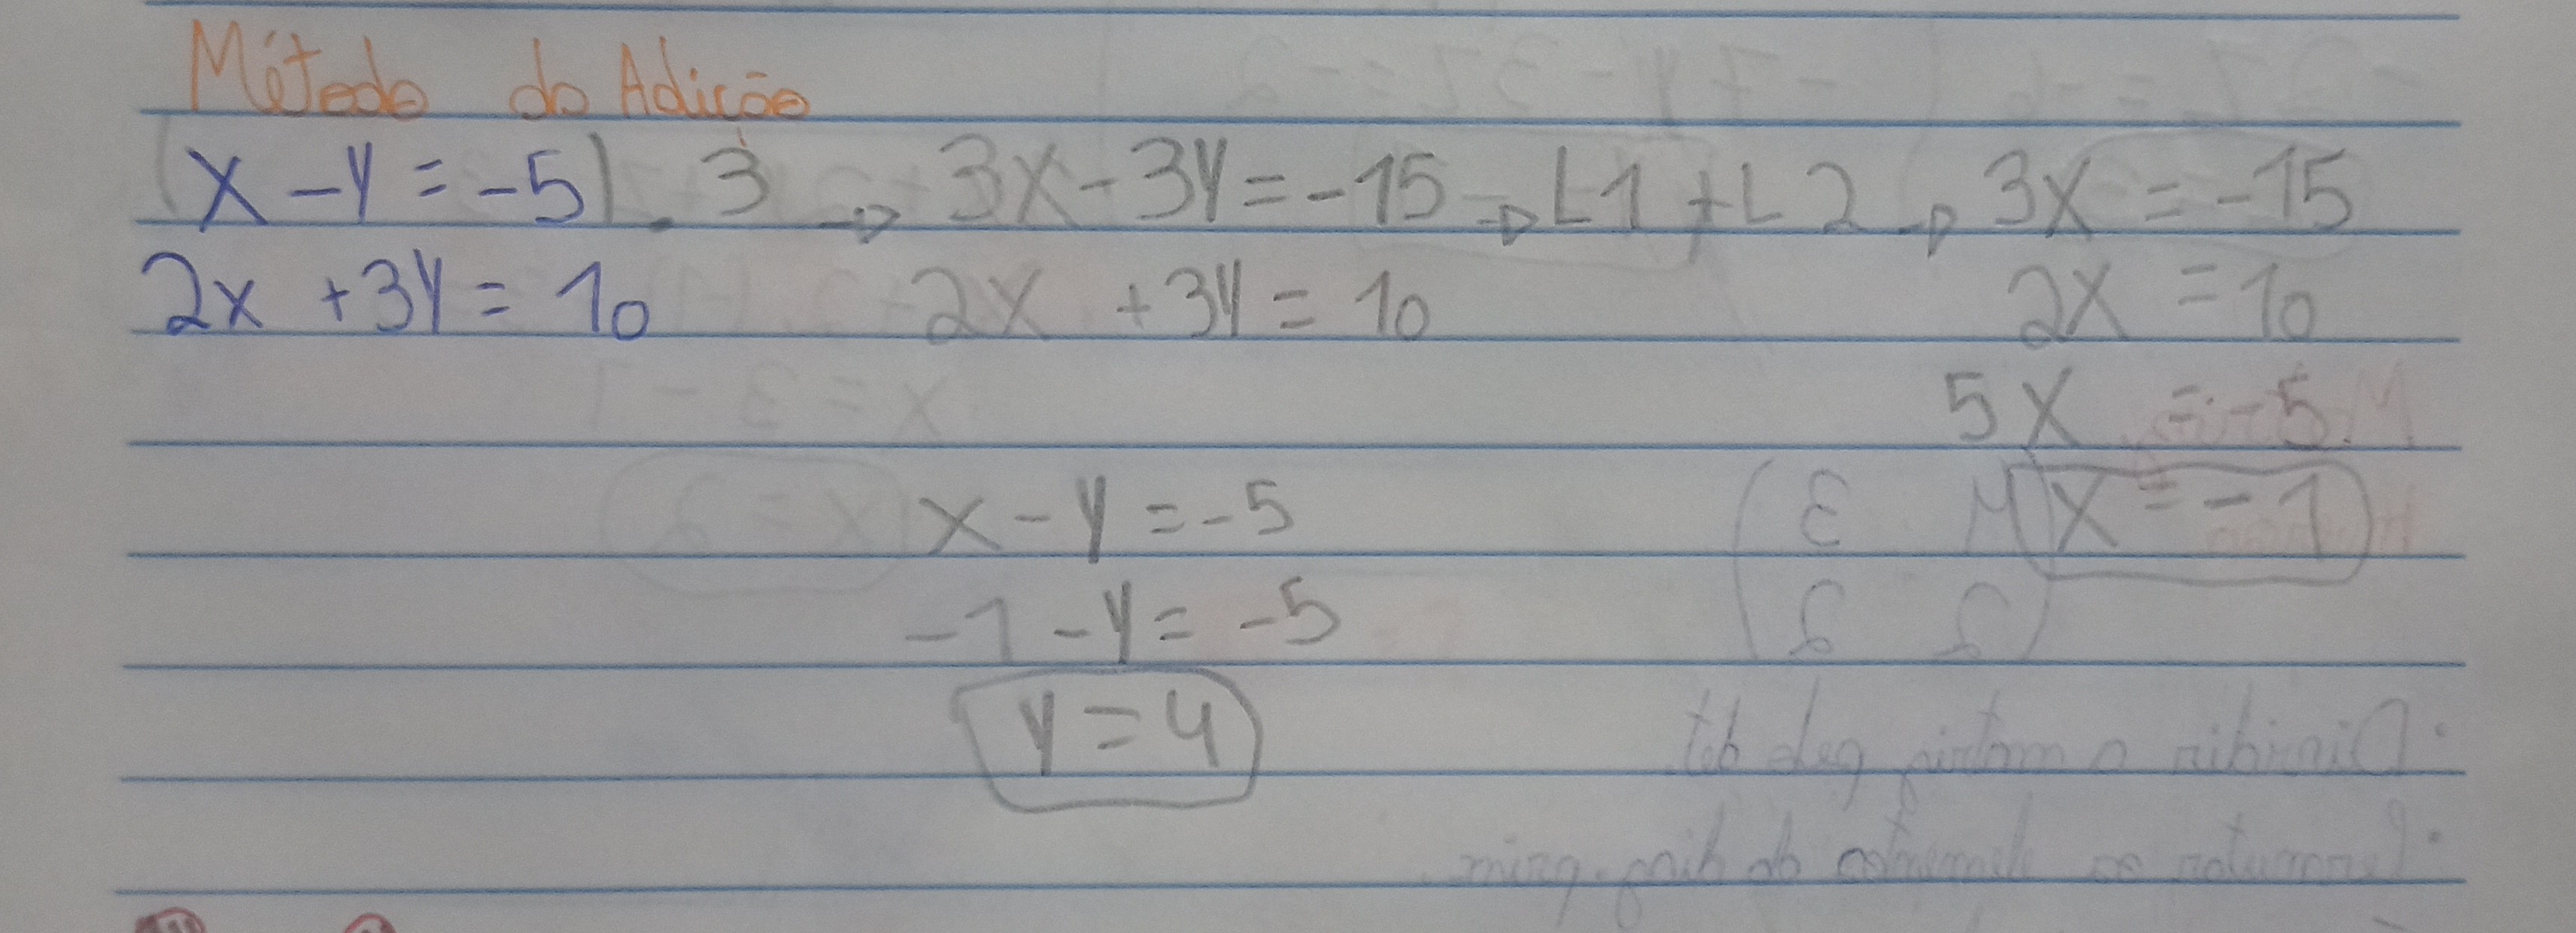 Método da Adição
(x - y = -5) . 3 → 3x - 3y = -15 → L1 + L2 → 3x = -15
2x + 3y = 10 2x + 3y = 10 2x = 10
5x = -5
x - y = -5 x = -1
-1 - y = -5
y = 4